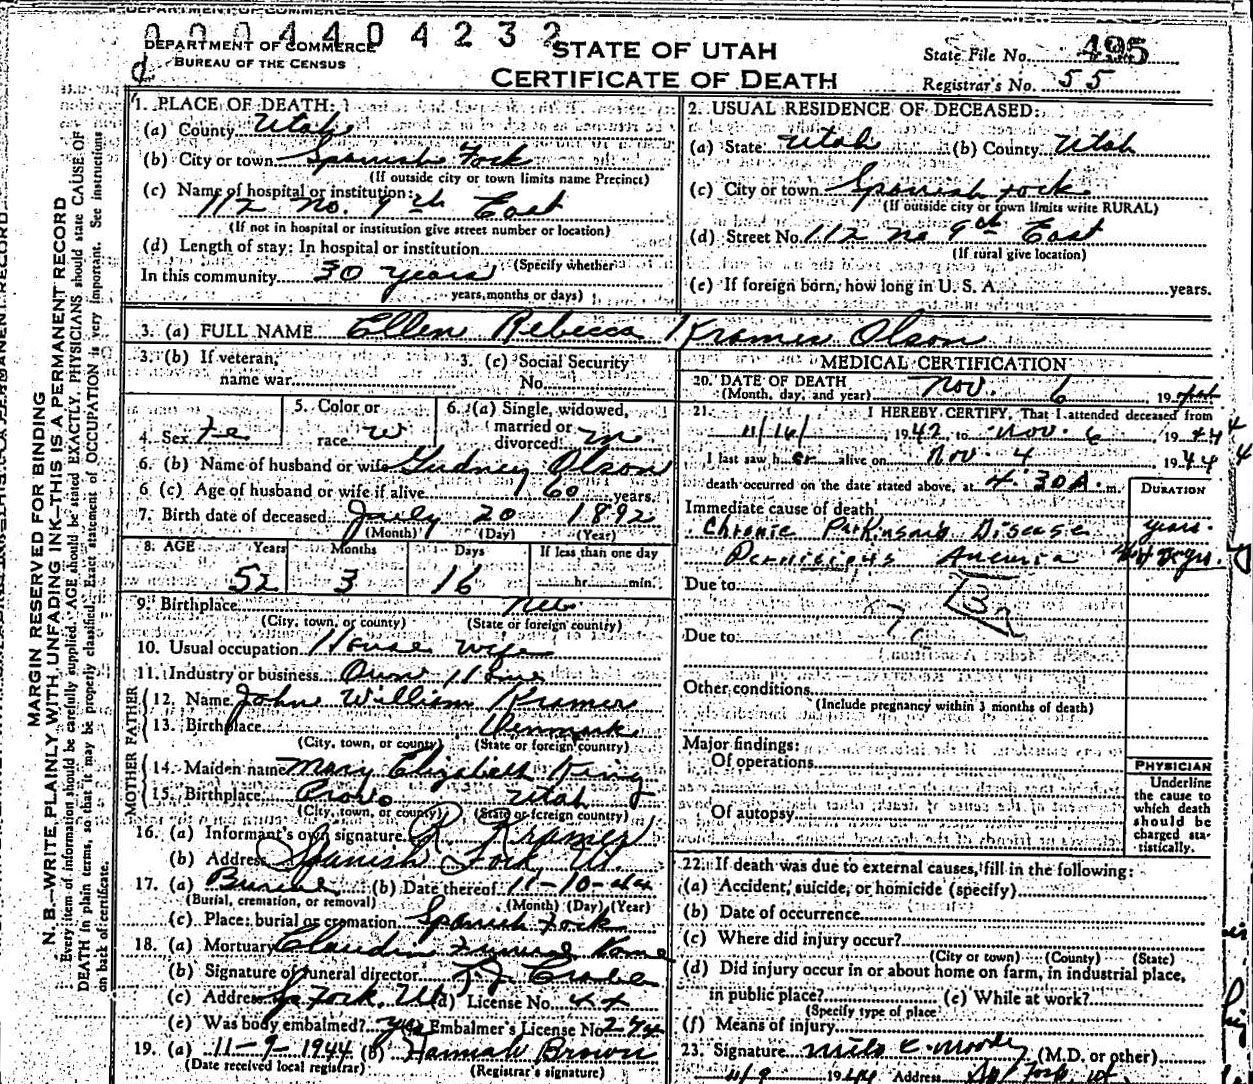 DEPARTMENT OF COMMERCE
0004404232
DEPARTMENT OF COMMERCE
BUREAU OF THE CENSUS
STATE OF UTAH
CERTIFICATE OF DEATH
State File No. 495
Registrar's No. 55
MARGIN RESERVED FOR BINDING
N. B.—WRITE PLAINLY WITH UNFADING INK—THIS IS A PERMANENT RECORD
Every item of information should be carefully supplied. AGE should be stated EXACTLY. PHYSICIANS should state CAUSE OF
DEATH in plain terms, so that it may be properly classified. Exact statement of OCCUPATION is very important. See instructions
on back of certificate.
1. PLACE OF DEATH:
(a) County Utah
(b) City or town Spanish Fork
(If outside city or town limits name Precinct)
(c) Name of hospital or institution:
112 No. 9th East
(If not in hospital or institution give street number or location)
(d) Length of stay: In hospital or institution
(Specify whether
In this community 30 years
years, months or days)
2. USUAL RESIDENCE OF DECEASED:
(a) State Utah (b) County Utah
(c) City or town Spanish Fork
(If outside city or town limits write RURAL)
(d) Street No. 112 no 9th East
(If rural give location)
(e) If foreign born, how long in U. S. A. years.
3. (a) FULL NAME Ellen Rebecca Kramer Olson
3. (b) If veteran,
name war
3. (c) Social Security
No.
4. Sex Fe
5. Color or
race W
6. (a) Single, widowed,
married or
divorced m
6. (b) Name of husband or wife Gudney Olson
6 (c) Age of husband or wife if alive 60 years.
7. Birth date of deceased July 20 1892
(Month) (Day) (Year)
8. AGE Years Months Days If less than one day
52 3 16 hr. min.
9. Birthplace
(City, town, or county) (State or foreign country)
10. Usual occupation House Wife
11. Industry or business Own Home
FATHER
12. Name John William Kramer
13. Birthplace Denmark
(City, town, or county) (State or foreign country)
MOTHER
14. Maiden name Mary Elizabeth King
15. Birthplace Provo Utah
(City, town, or county) (State or foreign country)
16. (a) Informant's own signature R Kramer
(b) Address Spanish Fork Ut.
17. (a) Burial (b) Date thereof 11-10-44
(Burial, cremation, or removal) (Month) (Day) (Year)
(c) Place: burial or cremation Spanish Fork
18. (a) Mortuary Claudin Funeral Home
(b) Signature of funeral director
(c) Address Sp Fork, Ut (d) License No. 44
(e) Was body embalmed? yes Embalmer's License No. 274
19. (a) 11-9-1944 (b) Hannah Brown
(Date received local registrar) (Registrar's signature)
MEDICAL CERTIFICATION
20. DATE OF DEATH Nov. 6 19
(Month, day, and year)
21. I HEREBY CERTIFY, That I attended deceased from
11/16/ 1942, to Nov. 6 1944
I last saw her alive on Nov. 4 1944
death occurred on the date stated above, at 4:30 A. m.
DURATION
Immediate cause of death
Chronic Parkinsons Disease years.
Pernicious Anemia yrs.
Due to
Due to
Other conditions
(Include pregnancy within 3 months of death)
Major findings:
Of operations
Of autopsy
PHYSICIAN
Underline
the cause to
which death
should be
charged sta-
tistically.
22. If death was due to external causes, fill in the following:
(a) Accident, suicide, or homicide (specify)
(b) Date of occurrence
(c) Where did injury occur?
(City or town) (County) (State)
(d) Did injury occur in or about home on farm, in industrial place,
in public place? (e) While at work?
(Specify type of place)
(f) Means of injury
23. Signature Milo C. Moody (M.D. or other)
11/9 1944 Address Sp Fork Ut